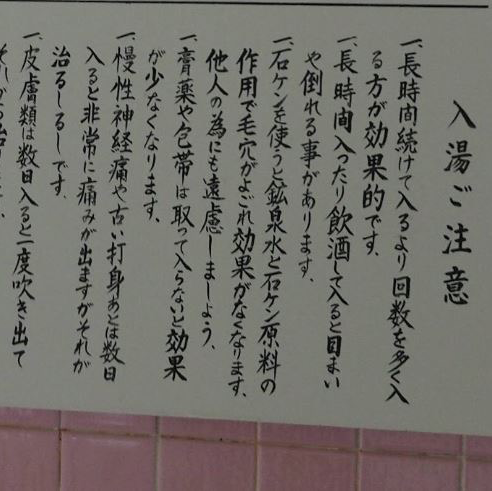 入湯ご注意
一、長時間続けて入るより回数を多く入
る方が効果的です、
一、長時間入ったり飲酒して入ると目まい
や倒れる事があります、
一、石ケンを使うと鉱泉水と石ケン原料の
作用で毛穴がよごれ効果がなくなります、
他人の為にも遠慮しましょう、
一、膏薬や包帯は取って入らないと効果
が少なくなります、
一、慢性神経痛や古い打身あとは数日
入ると非常に痛みが出ますがそれが
治るしるしです、
一、皮膚類は数日入ると一度吹き出て